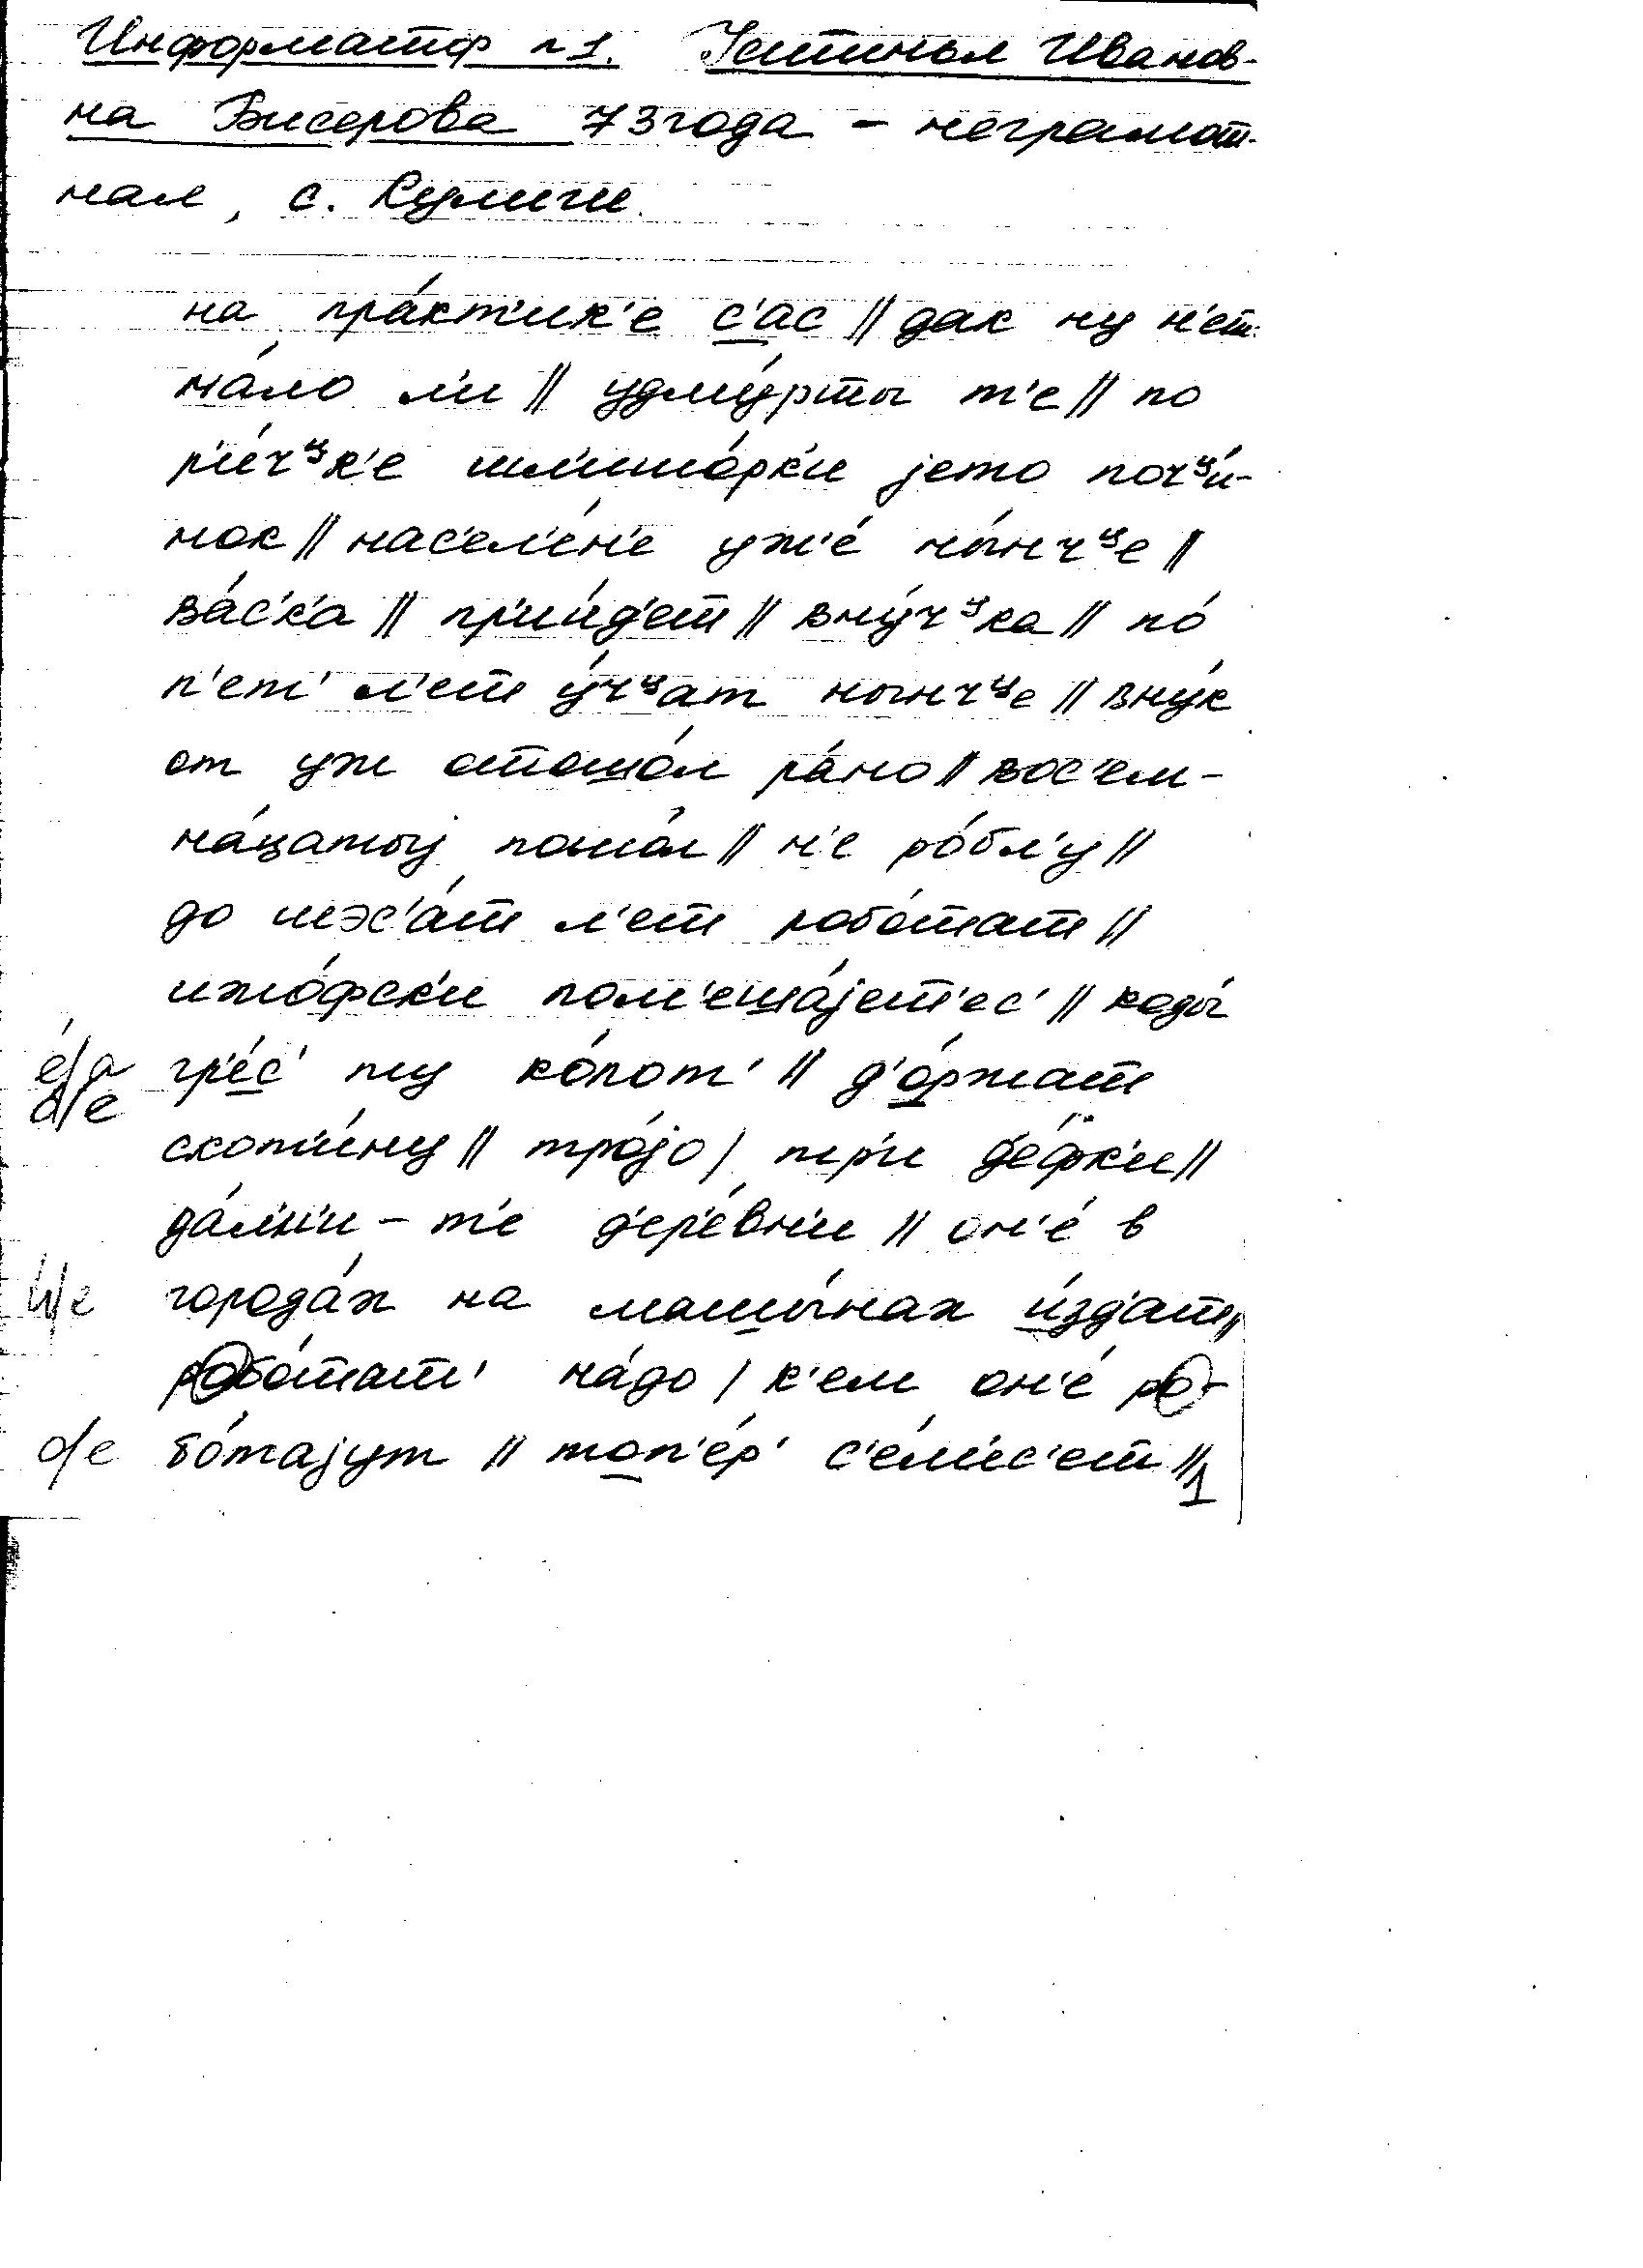 Информатор №1. Устинья Иванов-
на Бисерова 73 года – неграмот-
ная, с. Кулиги.
на пра́кт'ик'е с'ас // дак ну н'ет
ма́ло л'и // удму́рты т'е // по
р'и́чᶣк'е шл'ишо́рк'и jето почᶣи́-
нок // нас'ел'е́н'е уж'е́ ны́нчᶣе //
ва́с'к'а // при́йд'ет // вну́чᶣка // по́
п'ет' л'ет у́чᶣат нынчᶣе // вну́к
от уж отошо́л ра́но // вос'ем-
на́цатыj пошо́л // н'е ро́бл'у //
до шэс'а́т л'ет робо́тат //
ижо́фск'и пом'еша́jет'ес' // коды́
е́/а гр'е́с' ту ко́пот' // д'о́ржат
о/е
скот'и́ну // тро́jо / тр'и д'е́фк'и //
да́л'н'и – т'е д'ер'е́вн'и // он'е́ в
и́/е города́х на машы́нах и́зд'ат //
робо́тат' на́до / к'ем он'е́ ро-
о/е бо́таjут // топ'е́р' с'е́м'ис'ет //
1